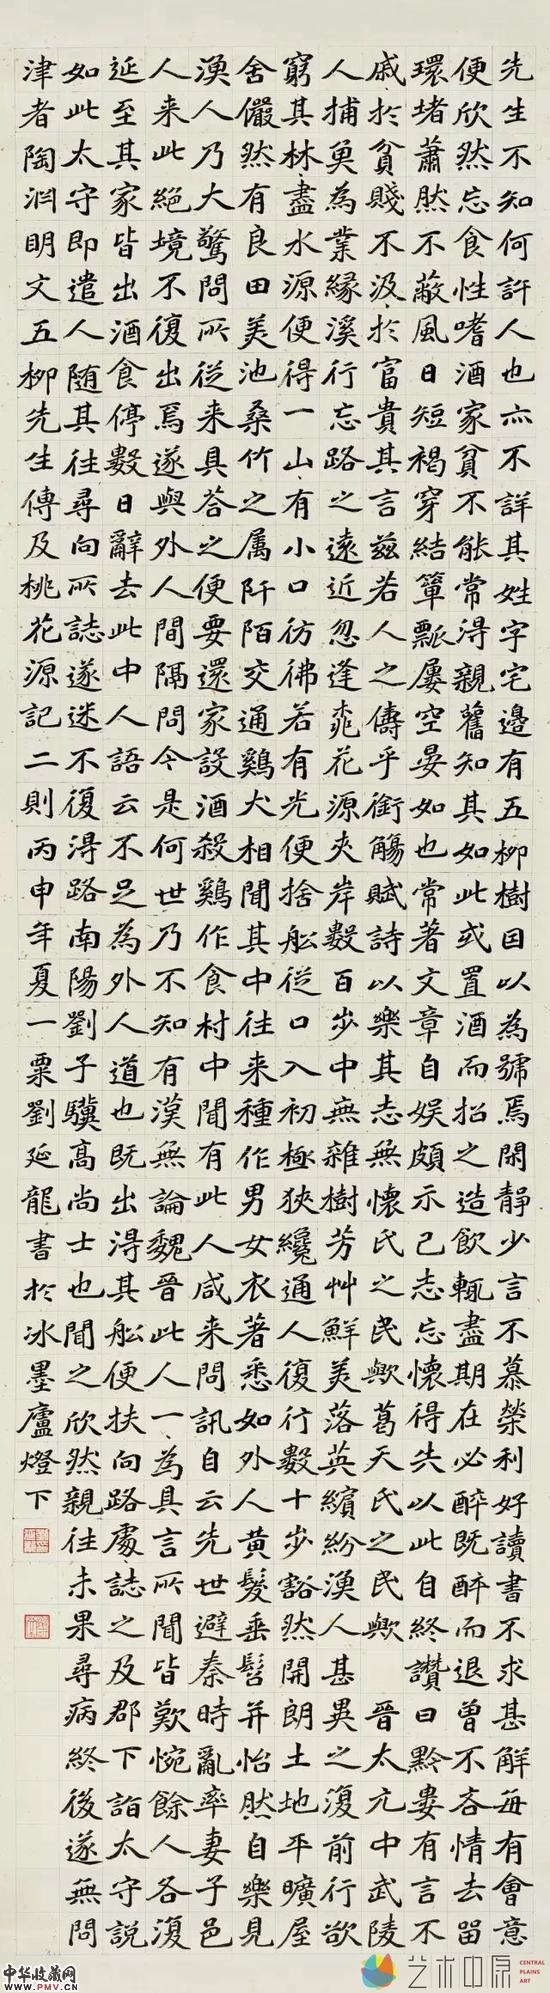 先生不知何許人也亦不詳其姓字宅邊有五柳樹因以為號焉閑靜少言不慕榮利好讀書不求甚解每有會意
便欣然忘食性嗜酒家貧不能常得親舊知其如此或置酒而招之造飲輒盡期在必醉既醉而退曾不吝情去留
環堵蕭然不蔽風日短褐穿結簞瓢屢空晏如也常著文章自娛頗示己志忘懷得失以此自終讚曰黔婁有言不
戚於貧賤不汲於富貴其言茲若人之儔乎銜觴賦詩以樂其志無懷氏之民歟葛天氏之民歟 晉太元中武陵
人捕魚為業緣溪行忘路之遠近忽逢桃花源夾岸數百步中無雜樹芳艸鮮美落英繽紛漁人甚異之復前行欲
窮其林盡水源便得一山有小口彷彿若有光便捨船從口入初極狹纔通人復行數十步豁然開朗土地平曠屋
舍儼然有良田美池桑竹之屬阡陌交通鷄犬相聞其中往来種作男女衣著悉如外人黃髮垂髫并怡然自樂見
漁人乃大驚問所從来具答之便要還家設酒殺鷄作食村中聞有此人咸来問訊自云先世避秦時亂率妻子邑
人来此絕境不復出焉遂與外人間隔問今是何世乃不知有漢無論魏晉此人一為具言所聞皆歎惋餘人各復
延至其家皆出酒食停數日辭去此中人語云不足為外人道也既出得其船便扶向路處誌之及郡下詣太守說
如此太守即遣人隨其往尋向所誌遂迷不復得路南陽劉子驥高尚士也聞之欣然親往未果尋病終後遂無問
津者陶淵明文五柳先生傳及桃花源記二則丙申年夏一粟劉延龍書於冰墨廬燈下
中华收藏网
www.PMV.CN
艺术中原
CENTRAL
PLAINS
ART